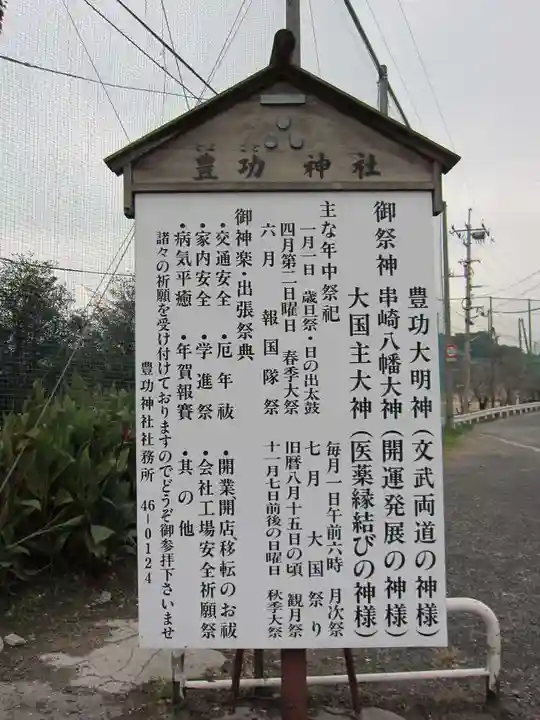 豊功神社
豊功大明神（文武両道の神様）
御祭神 串崎八幡大神（開運発展の神様）
大国主大神（医薬縁結びの神様）
主な年中祭祀
毎月一日午前六時 月次祭
一月一日 歳旦祭・日の出太鼓
七月 大国祭り
四月第二日曜日 春季大祭
旧暦八月十五日の頃 観月祭
六月 報国隊祭
十一月七日前後の日曜日 秋季大祭
御神楽・出張祭典
・交通安全 ・厄年祓 ・開業開店移転のお祓
・家内安全 ・学進祭 ・会社工場安全祈願祭
・病気平癒 ・年賀報賽 ・其の他
諸々の祈願を受け付けておりますのでどうぞ御参拝下さいませ
豊功神社社務所 46-0124